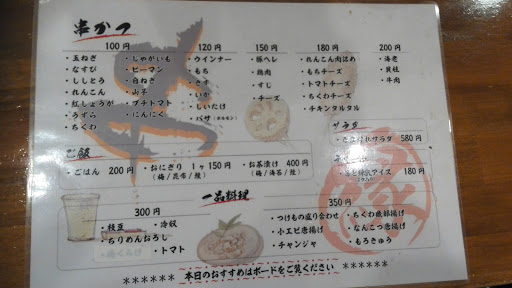 串かつ
100円
・玉ねぎ
・なすび
・ししとう
・れんこん
・紅しょうが
・うずら
・ちくわ
・じゃがいも
・ピーマン
・白ねぎ
・プチトマト
・にんにく
120円
・ウインナー
・もち
・いか
・しいたけ
150円
・豚ヘレ
・鶏肉
・すじ
・チーズ
180円
・れんこん肉詰め
・もちチーズ
・トマトチーズ
・ちくわチーズ
・チキンタルタル
200円
・海老
・貝柱
・牛肉
580円
180円
ご飯
・ごはん 200円
・おにぎり 1ヶ150円
(梅/昆布/鮭)
・お茶漬け 400円
(梅/海苔/鮭)
一品料理
300円
・枝豆
・冷奴
・ちりめんおろし
・トマト
350円
・つけもの盛り合わせ
・小エビ唐揚げ
・チャンジャ
・ちくわ磯部揚げ
・なんこつ唐揚げ
・もろきゅう
******本日のおすすめはボードをご覧ください******